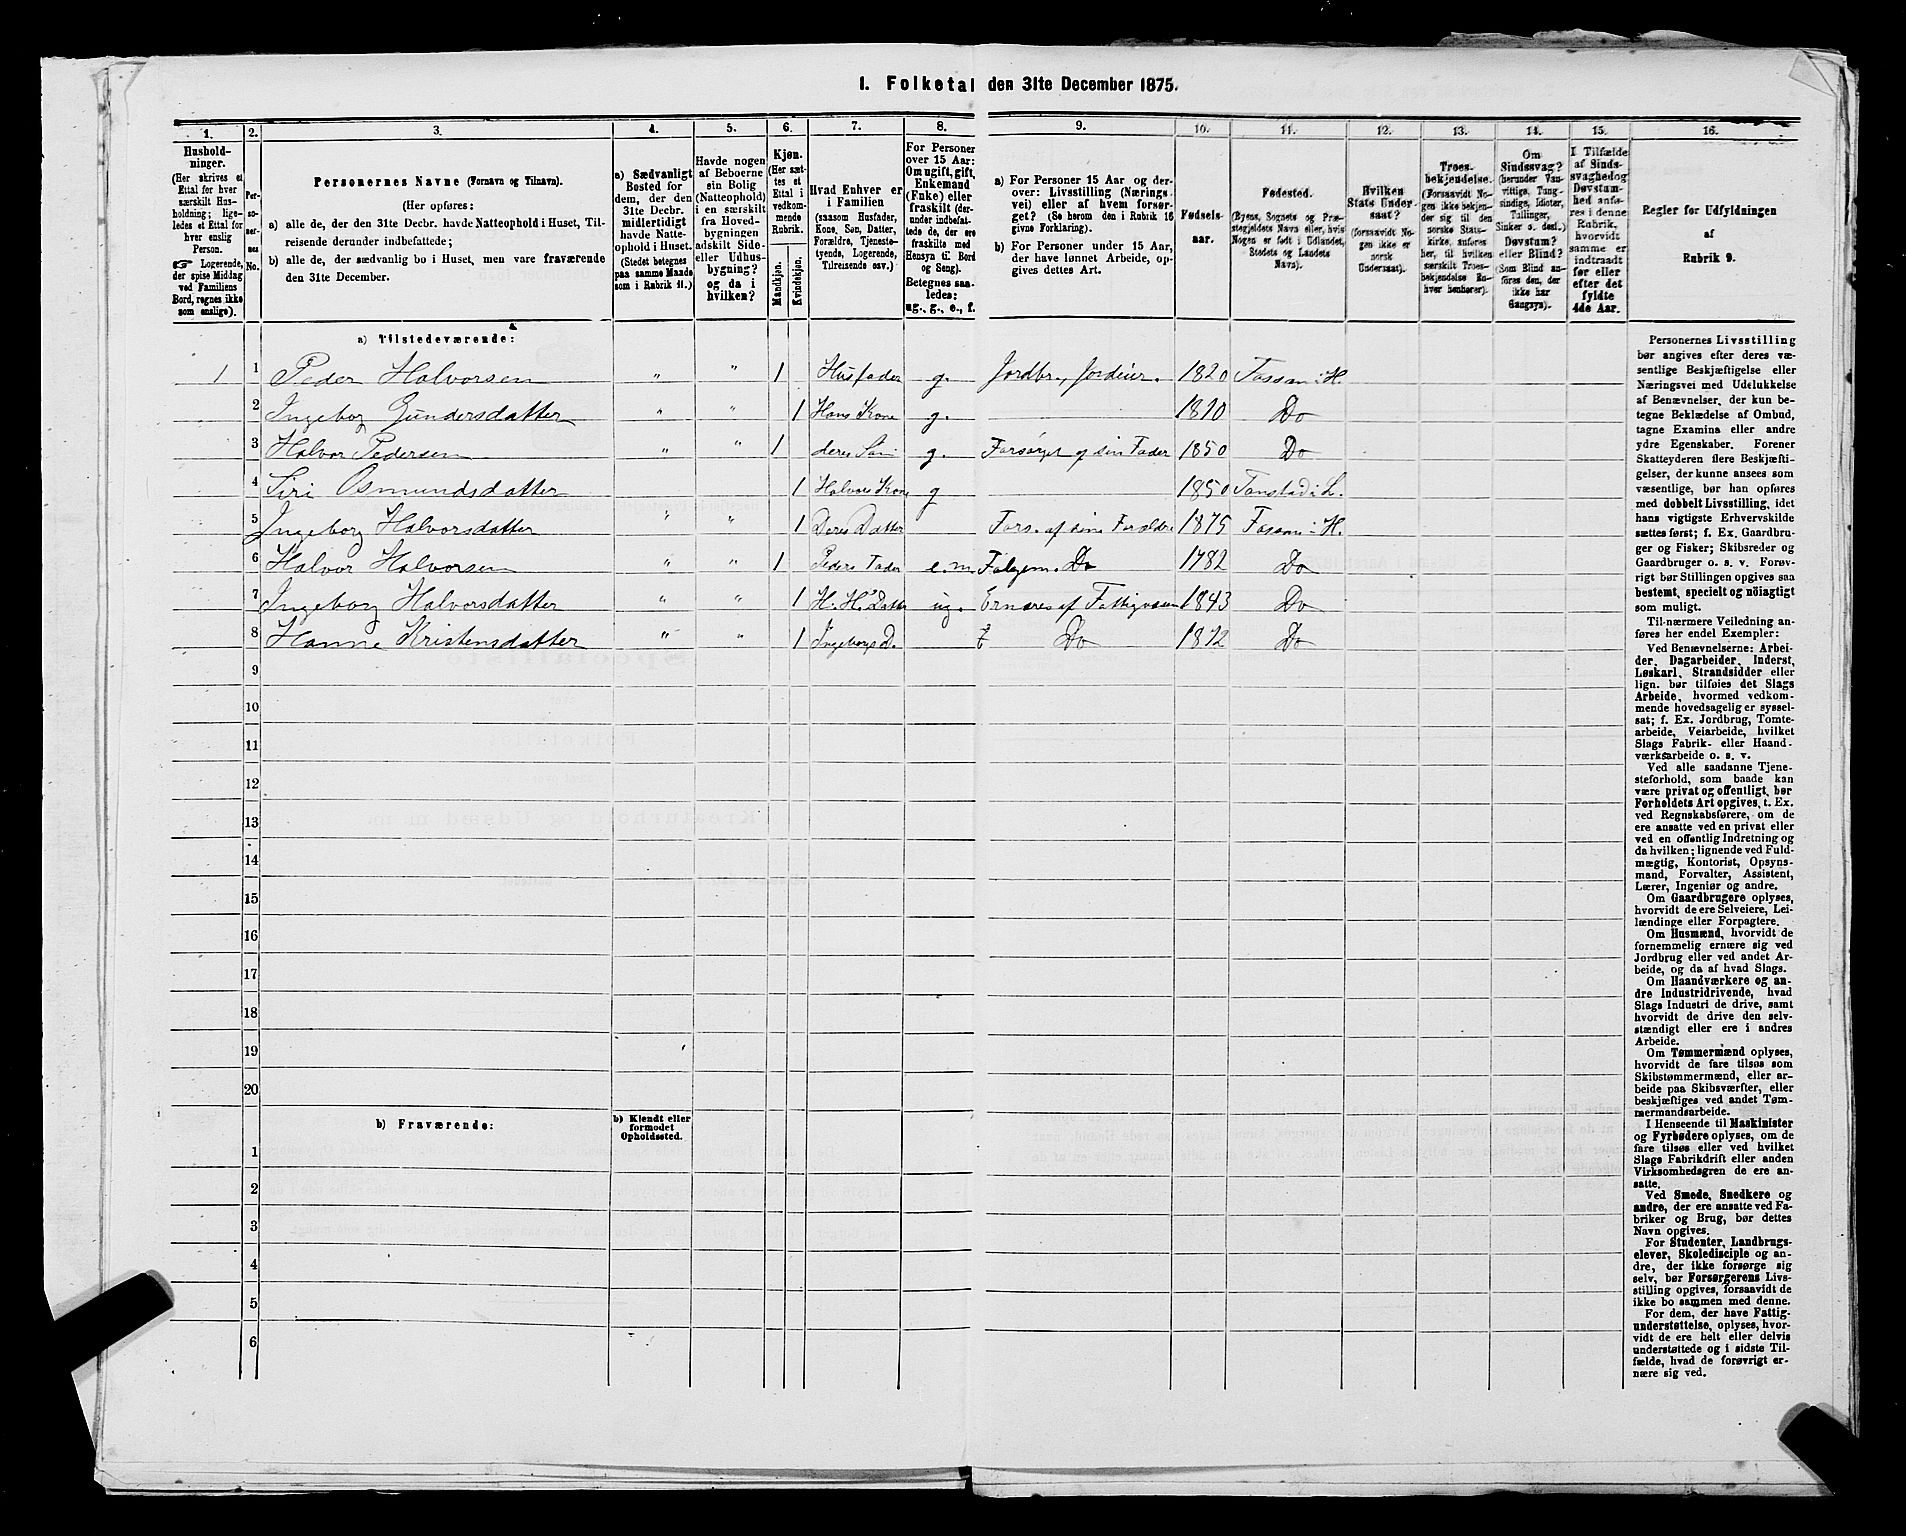 1. Folketal den 31te December 1875.
1. 2. 3. 4. 5. 6. 7. 8. 9. 10. 11. 12. 13. 14. 15. 16.
Hushold-
ninger.
(Her skrives et
Ettal for hver
særskilt Hus-
holdning; lige-
ledes et Ettal for
hver enslig
Person.
☞ Logerende,
der spise Middag
ved Familiens
Bord, regnes ikke
som enslige).
Per-
so-
ner-
nes
No.
Personernes Navne (Fornavn og Tilnavn).
(Her opføres:
a) alle de, der den 31te Decbr. havde Natteophold i Huset, Til-
reisende derunder indbefattede;
b) alle de, der sædvanlig bo i Huset, men vare fraværende
den 31te December.
a) Sædvanligt
Bosted for
dem, der den
31te Decbr.
midlertidigt
havde Natte-
ophold i Huset.
(Stedet betegnes
paa samme Maade
som i Rubrik 11.)
Havde nogen
af Beboerne
sin Bolig
(Natteophold)
i en særskilt
fra Hoved-
bygningen
adskilt Side-
eller Udhus-
bygning?
og da i
hvilken?
Kjøn.
(Her sæt-
tes et
Ettal i
vedkom-
mende
Rubrik.
Mandkjøn.
Kvindekjøn.
Hvad Enhver er
i Familien
(saasom Husfader,
Kone, Søn, Datter,
Forældre, Tjeneste-
tyende, Logerende,
Tilreisende osv.)
For Personer
over 15 Aar:
Om ugift, gift,
Enkemand
(Enke) eller
fraskilt (der-
under indbefat-
tede de, der ere
fraskilte med
Hensyn til Bord
og Seng).
Betegnes saa-
ledes:
ug., g., e., f.
a) For Personer 15 Aar og der-
over: Livsstilling (Nærings-
vei) eller af hvem forsør-
get? (Se herom den i Rubrik 16
givne Forklaring).
b) For Personer under 15 Aar,
der have lønnet Arbeide, op-
gives dettes Art.
Fødsels-
aar.
Fødested.
(Byens, Sognets og Præ-
stegjeldets Navn eller, hvis
Nogen er født i Udlandet,
Stedets og Landets
Navn).
Hvilken
Stats Under-
saat?
(forsaavidt No-
gen ikke er
norsk
Undersaat).
Troes-
bekjendelse.
(Forsaavidt No-
gen ikke bekjen-
der sig til den
norske Stats-
kirke, anføres
her, til hvilken
særskilt Troes-
bekjendelse En-
hver henhører).
Om
Sindssvag?
(herunder Van-
vittige, Tung-
sindige, Idioter,
Tullinger,
Sinker o. desl.)
Døvstum?
eller Blind?
(Som Blind an-
føres den, der
ikke har
Gangsyn).
I Tilfælde
af Sinds-
svaghed og
Døvstum-
hed anfø-
res i denne
Rubrik,
hvorvidt
samme er
indtraadt
før eller
efter det
fyldte
4de Aar.
Regler for Udfyldningen
af
Rubrik 9.
a) Tilstedeværende:
1 1 Peder Halvorsen " " 1 Husfader g. Jordbr., Jordeier. 1820 Fossan i H.
2 Ingeborg Gundersdatter " " 1 Hans Kone g. 1810 Do
3 Halvor Pedersen " " 1 deres Søn g. Forsørget af sin Fader 1850 Do
4 Siri Osmundsdatter 1 Halvors Kone g 1850 Tonstad i L.
5 Ingeborg Halvorsdatter " " 1 Deres Datter Fors. af sine Forældre 1875 Fossan i H.
6 Halvor Halvorsen " " 1 Peders Fader e.m. Følgem. Do 1782 Do
7 Ingeborg Halvorsdatter " " 1 H. H.s Datter ug. Ernæres af Fattigvæsen 1843 Do
8 Hanne Kristensdatter " " 1 Ingeborgs D. Do 1872 Do
9
10
11
12
13
14
15
16
17
18
19
20
b) Fraværende:
b) Kjendt eller
formodet
Opholdssted.
1
2
3
4
5
6
Personernes Livsstilling
bør angives efter deres væ-
sentlige Beskjæftigelse eller
Næringsvei med Udelukkelse
af Benævnelser, der kun be-
tegne Beklædelse af Ombud,
tagne Examina eller andre
ydre Egenskaber. Forener
Skatteyderen flere Beskjæfti-
gelser, der kunne ansees som
væsentlige, bør han opføres
med dobbelt Livsstilling, idet
hans vigtigste Erhvervskilde
sættes først; f. Ex. Gaardbru-
ger og Fisker; Skibsreder og
Gaardbruger o. s. v. Forøv-
rigt bør Stillingen opgives saa
bestemt, specielt og nøiagtigt
som muligt.
Til nærmere Veiledning an-
føres her endel Exempler:
Ved Benævnelserne: Arbei-
der, Dagarbeider, Inderst,
Løskarl, Strandsidder eller
lign. bør tilføies det Slags
Arbeide, hvormed vedkom-
mende hovedsagelig er syssel-
sat; f. Ex. Jordbrug, Tomte-
arbeide, Veiarbeide, hvilket
Slags Fabrik- eller Haand-
værksarbeide o. s. v.
Ved alle saadanne Tjene-
steforhold, som baade kan
være privat og offentligt, bør
Forholdets Art opgives, t. Ex.
ved Regnskabsførere, om de
ere ansatte ved en privat eller
ved en offentlig Indretning og
da hvilken; lignende ved Fuld-
mægtig, Kontorist, Opsyns-
mand, Forvalter, Assistent,
Lærer, Ingeniør og andre.
Om Gaardbrugere oplyses,
hvorvidt de ere Selveiere, Lei-
lændinge eller Forpagtere.
Om Husmænd, hvorvidt de
fornemmelig ernære sig ved
Jordbrug eller ved andet Ar-
beide, og da af hvad Slags.
Om Haandværkere og an-
dre Industridrivende, hvad
Slags Industri de drive, samt
hvorvidt de drive den selv-
stændigt eller ere i andres
Arbeide.
Om Tømmermænd oplyses,
hvorvidt de fare tilsøs som
Skibstømmermænd, eller ar-
beide paa Skibsværfter, eller
beskjæftiges ved andet Tøm-
mermandsarbeide.
I Henseende til Maskinister
og Fyrbødere oplyses, om de
fare tilsøs eller ved hvilket
Slags Fabrikdrift eller anden
Virksomhedsgren de ere an-
satte.
Ved Smede, Snedkere og
andre, der ere ansatte ved Fa-
briker og Brug, bør dettes
Navn opgives.
For Studenter, Landbrugs-
elever, Skoledisciple og an-
dre, der ikke forsørge sig
selv, bør Forsørgerens Livs-
stilling opgives, forsaavidt de
ikke bo sammen med denne.
For dem, der have Fattig-
understøttelse, oplyses, hvor-
vidt de ere helt eller delvis
understøttede og i sidste Til-
fælde, hvad de forøvrigt er-
nære sig ved.